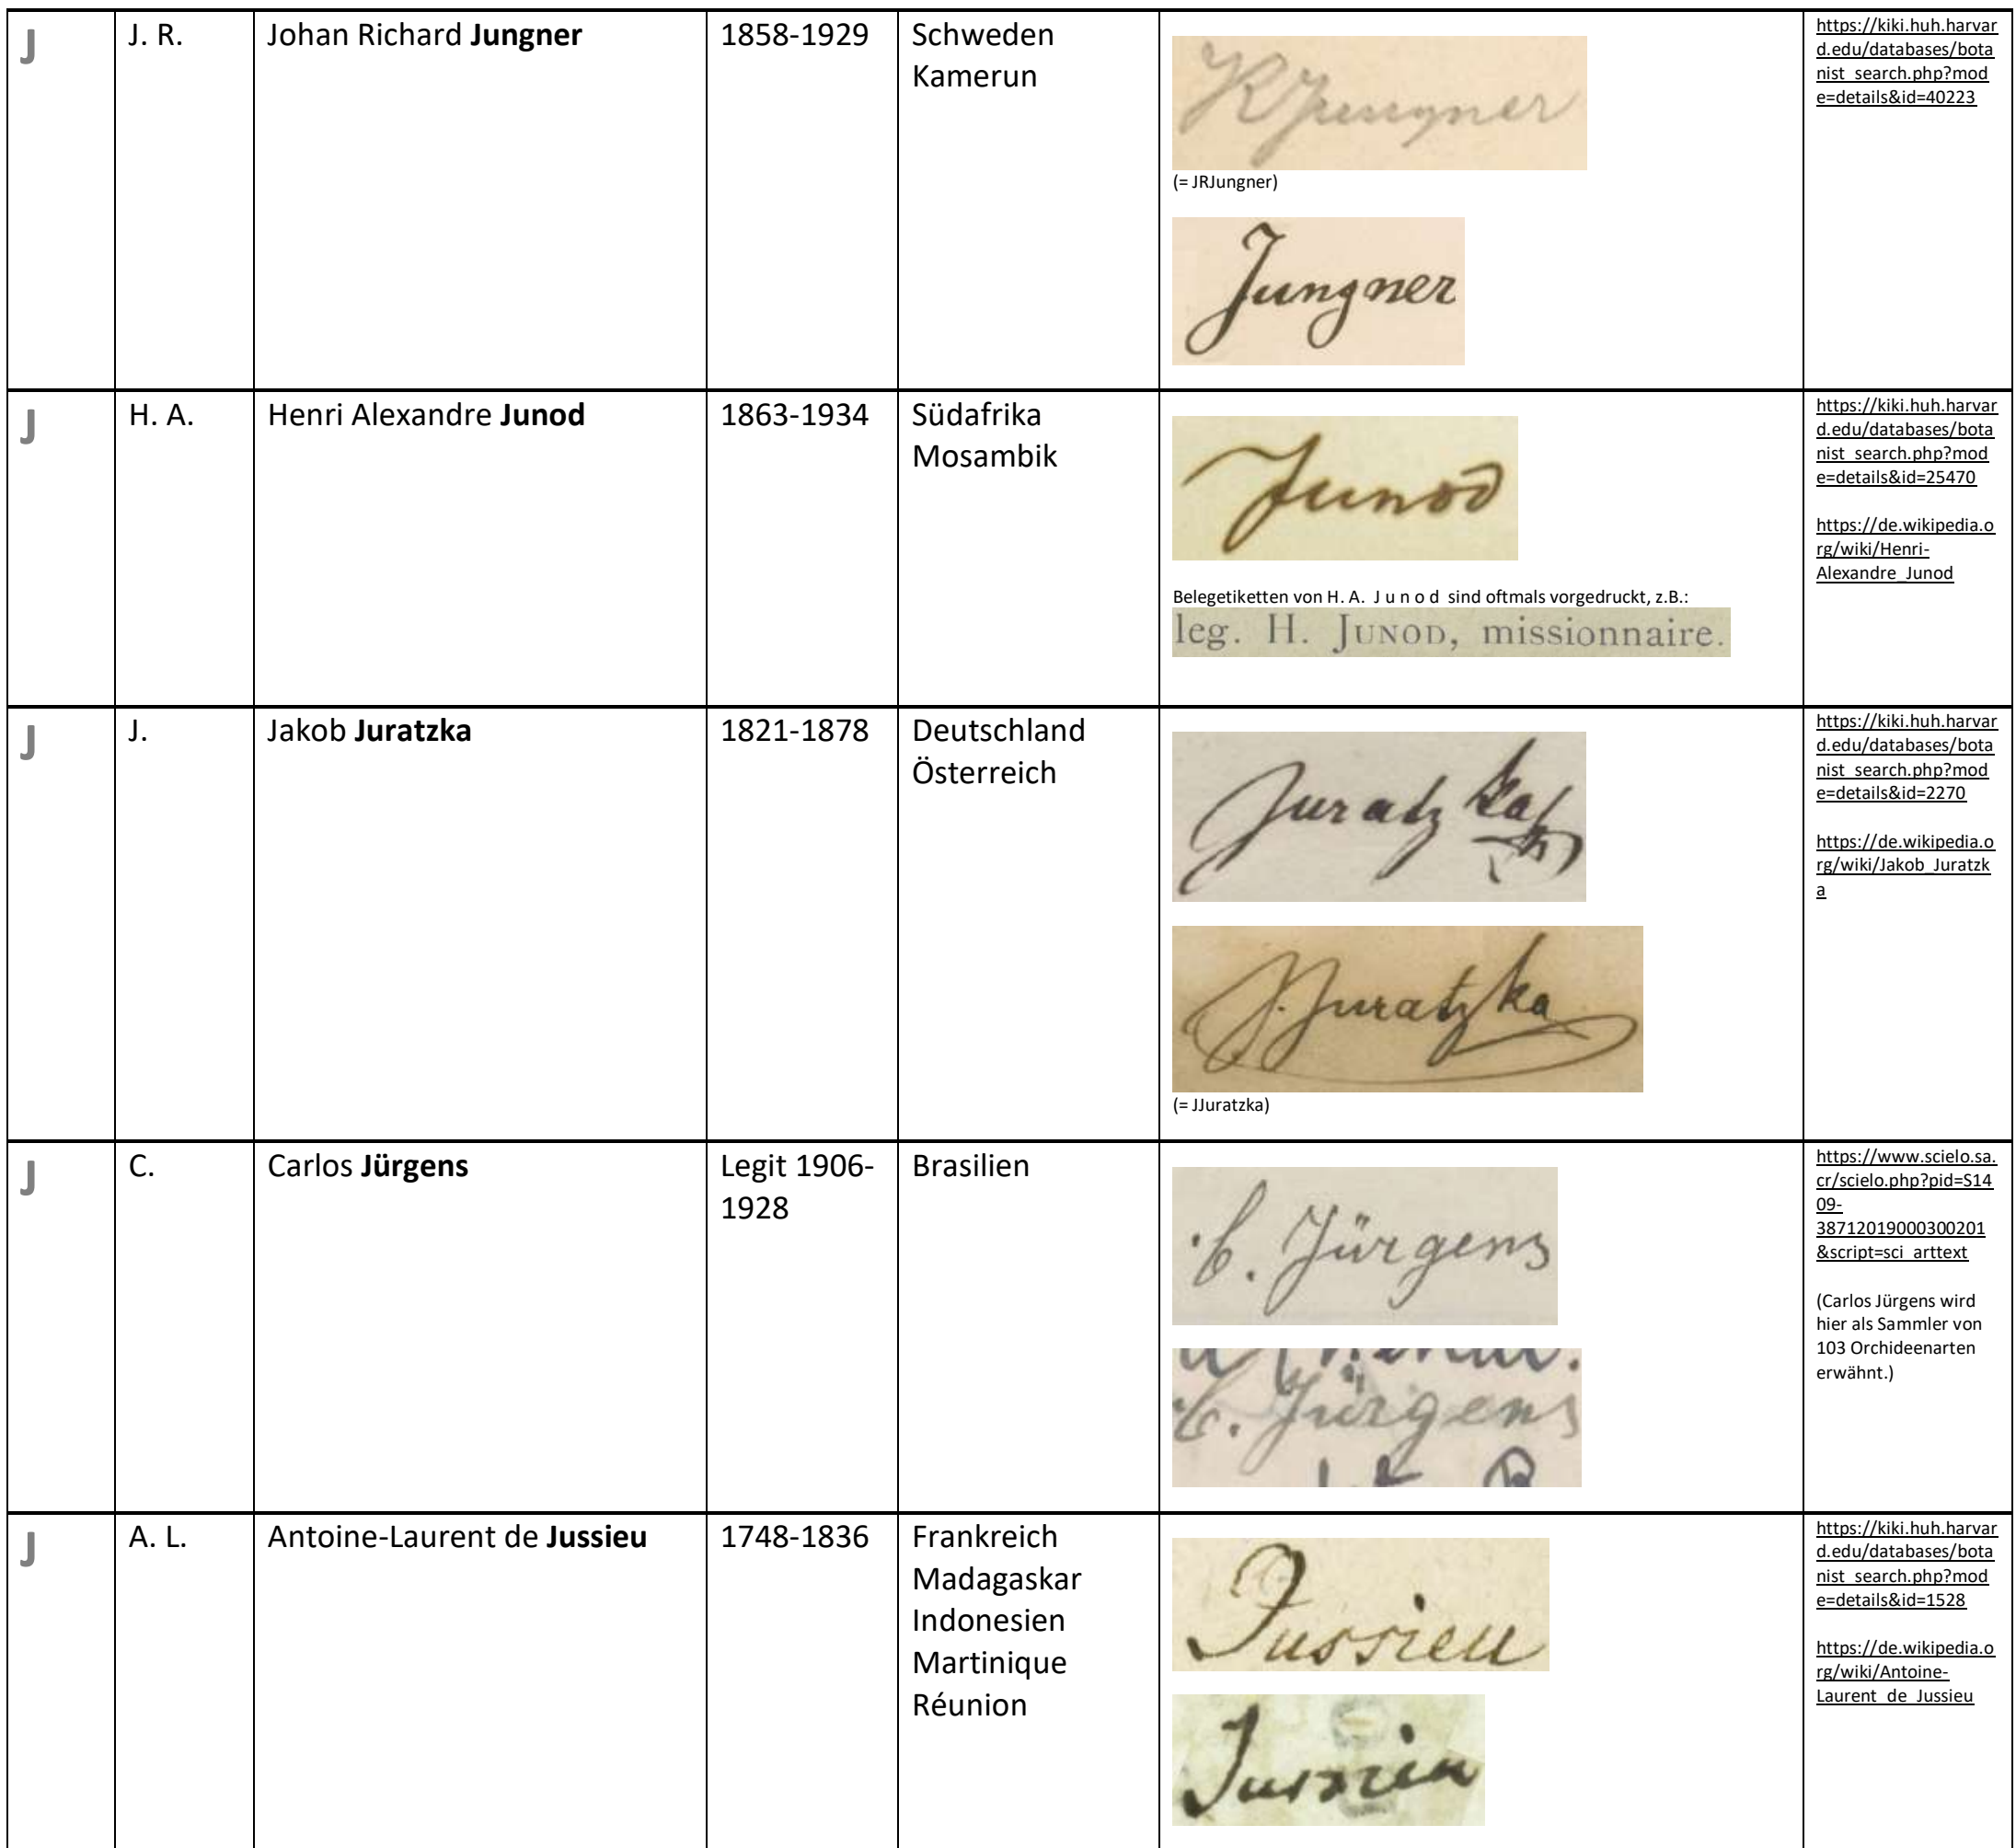 J
J. R.
Johan Richard Jungner
1858-1929
Schweden
Kamerun
JRJungner
(= JRJungner)
Jungner
https://kiki.huh.harvar
d.edu/databases/bota
nist_search.php?mod
e=details&id=40223
J
H. A.
Henri Alexandre Junod
1863-1934
Südafrika
Mosambik
Junod
Belegetiketten von H. A. J u n o d sind oftmals vorgedruckt, z.B.:
leg. H. JUNOD, missionnaire.
https://kiki.huh.harvar
d.edu/databases/bota
nist_search.php?mod
e=details&id=25470
https://de.wikipedia.o
rg/wiki/Henri-
Alexandre_Junod
J
J.
Jakob Juratzka
1821-1878
Deutschland
Österreich
Juratzka
J. Juratzka
(= JJuratzka)
https://kiki.huh.harvar
d.edu/databases/bota
nist_search.php?mod
e=details&id=2270
https://de.wikipedia.o
rg/wiki/Jakob_Juratzk
a
J
C.
Carlos Jürgens
Legit 1906-
1928
Brasilien
C. Jürgens
C. Jürgens
https://www.scielo.sa.
cr/scielo.php?pid=S14
09-
38712019000300201
&script=sci_arttext
(Carlos Jürgens wird
hier als Sammler von
103 Orchideenarten
erwähnt.)
J
A. L.
Antoine-Laurent de Jussieu
1748-1836
Frankreich
Madagaskar
Indonesien
Martinique
Réunion
Jussieu
Jussieu
https://kiki.huh.harvar
d.edu/databases/bota
nist_search.php?mod
e=details&id=1528
https://de.wikipedia.o
rg/wiki/Antoine-
Laurent_de_Jussieu